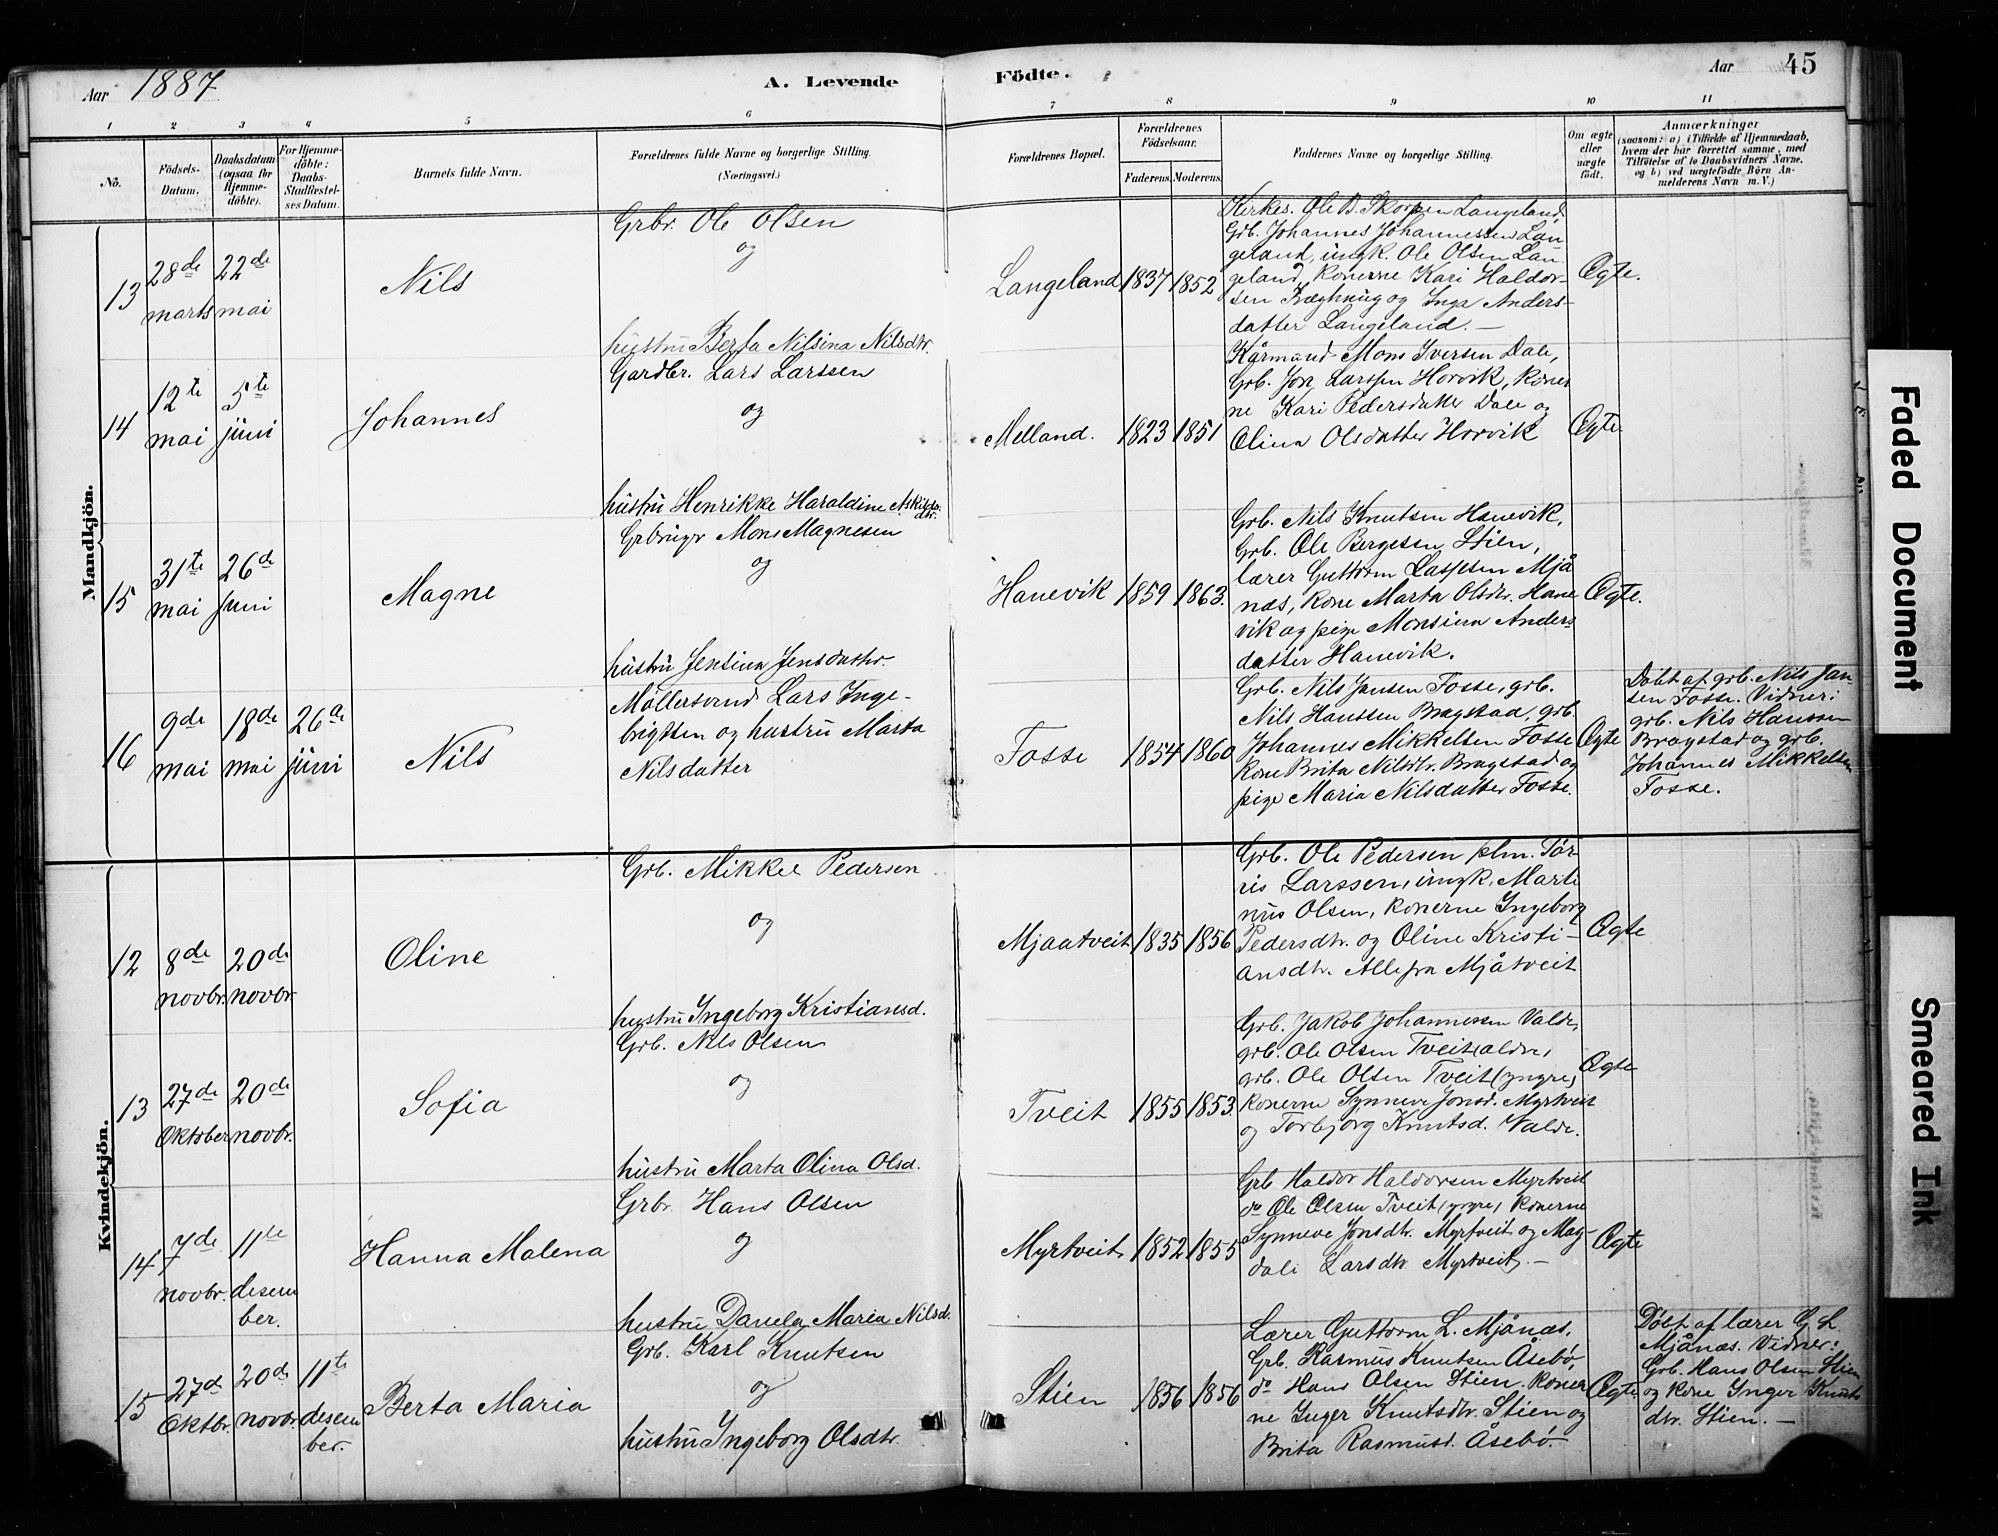 Aar 1887
A. Levende
Födte.
Aar
45
1
2
3
4
5
6
7
8
9
10
11
No.
Födsels-
Datum.
Daabsdatum
(ogsaa for
Hjemme-
döbte).
For Hjemme-
döbte:
Daabs-
Stadfæstel-
ses Datum.
Barnets fulde Navn.
Forældrenes fulde Navne og borgerlige Stilling.
(Næringsvei.)
Forældrenes Bopæl.
Forældrenes
Födselsaar.
Faderens.
Moderens.
Faddernes Navne og borgerlige Stilling.
Om ægte
eller
uægte
födt.
Anmærkninger
(saasom: a) i Tilfælde af Hjemmedaab,
hvem der har forrettet samme, med
Tilföielse af to Daabsvidners Navne,
og b) ved uægtefödte Börn An-
melderens Navn m. V.)
Mandkjön.
13
28de
marts
22de
mai
Nils
Grbr. Ole Olsen
og
hustru Berta Nilsina Nilsdtr.
Langeland
1837
1852
Kirkes. Ole B. Skorpen Langeland.
Grb. Johannes Johannessen Lan-
geland, ungk. Ole Olsen Lan-
geland, konerne Kari Haldor-
sen og Inga Anders-
datter Langeland. —
Ægte.
14
12te
mai
5te
juni
Johannes
Gardbr. Lars Larssen
og
hustru Henrikke Haraldine Askilds-
dtr.
Melland.
1823
1851
Kårmand Mons Iversen Dale,
Grb. Jon Larssen Horvik, koner
ne Kari Pedersdatter Dale og
Olina Olsdatter Horvik
Ægte.
15
31te
mai
26d
Juni
Magne
Grbrugr Mons Magnesen
og
hustru Jensina Jensdatter.
Hanevik
1859
1863.
Grb. Nils Knutsen Hanevik,
Grb. Ole Bergesen Stien,
lærer Guttorm Lassesen Mjå
næs, kone Marta Olsdtr. Hane
vik og pige Monsina Anders
datter Hanevik.
Ægte.
16
9de
mai
18de
mai
26de
juni
Nils
Möllersvend Lars Inge-
brigtsen og hustru Marta
Nilsdatter
Fosse
1854
1860
Grb. Nils Jansen Fosse, grb.
Nils Hanssen Bragstad, grb.
Johannes Mikkelsen Fosse
kone Brita Nilsdtr. Bragstad og
pige Maria Nilsdatter Fosse.
Ægte
Döbt af grb. Nils Jan-
sen Fosse. Vidner:
grb. Nils Hanssen
Bragstad og grb.
Johannes Mikkelsen
Fosse.
Kvindekjön.
12
8de
novbr.
20de
novbr.
Oline
Grb. Mikkel Pedersen
og
hustru Ingeborg Kristiansd.
Mjaatveit
1835
1856
Grb. Ole Pedersen plm. Tör-
ris Larssen, ungk. Marti
nus Olsen, konerne Ingeborg
Pedersdtr. og Oline Kristi-
ansdtr. Alle fra Mjåtveit
Ægte
13
27de
Oktober
20de
novbr.
Sofia
Grb. Nils Olsen
og
hustru Marta Olina Olsd.
Tveit
1855
1853.
Grb. Jakob Johannessen Valde,
grb. Ole Olsen Tveit (ældre,
grb. Ole Olsen Tveit (yngre,
konerne Synneve Jonsd. Myrtveit
og Torbjörg Knutsd. Valde.
Ægte
14
7de
novbr.
11te
desem
ber.
Hanna Malena
Grbr. Hans Olsen
og
hustru Daniela Maria Nilsd.
Myrtveit
1852
1855
Grb Haldor Haldorsen Myrtveit
do Ole Olsen Tveit (yngre) konerne
Synneve Jonsdtr. Myrtveit og Mag-
dali Larsdtr Myrtveit. —
Ægte
15
27d
Oktbr.
20de
novbr
11te
desem
ber.
Berta Maria
Grb. Karl Knutsen
og
hustru Ingeborg Olsdtr.
Stien
1856
1856
Lærer Guttorm L. Mjånæs,
Grb. Rasmus Knutsen Åsebö,
do Hans Olsen Stien. koner
ne Inger Knutsdtr. Stien og
Brita Rasmusd. Åsebö.
Ægte.
Døbt af lærer G. L.
Mjånæs. Vidner:
Grb. Hans Olsen Stien
og kone Inger Knuts
dtr. Stien. —
Faded Document
Smeared Ink